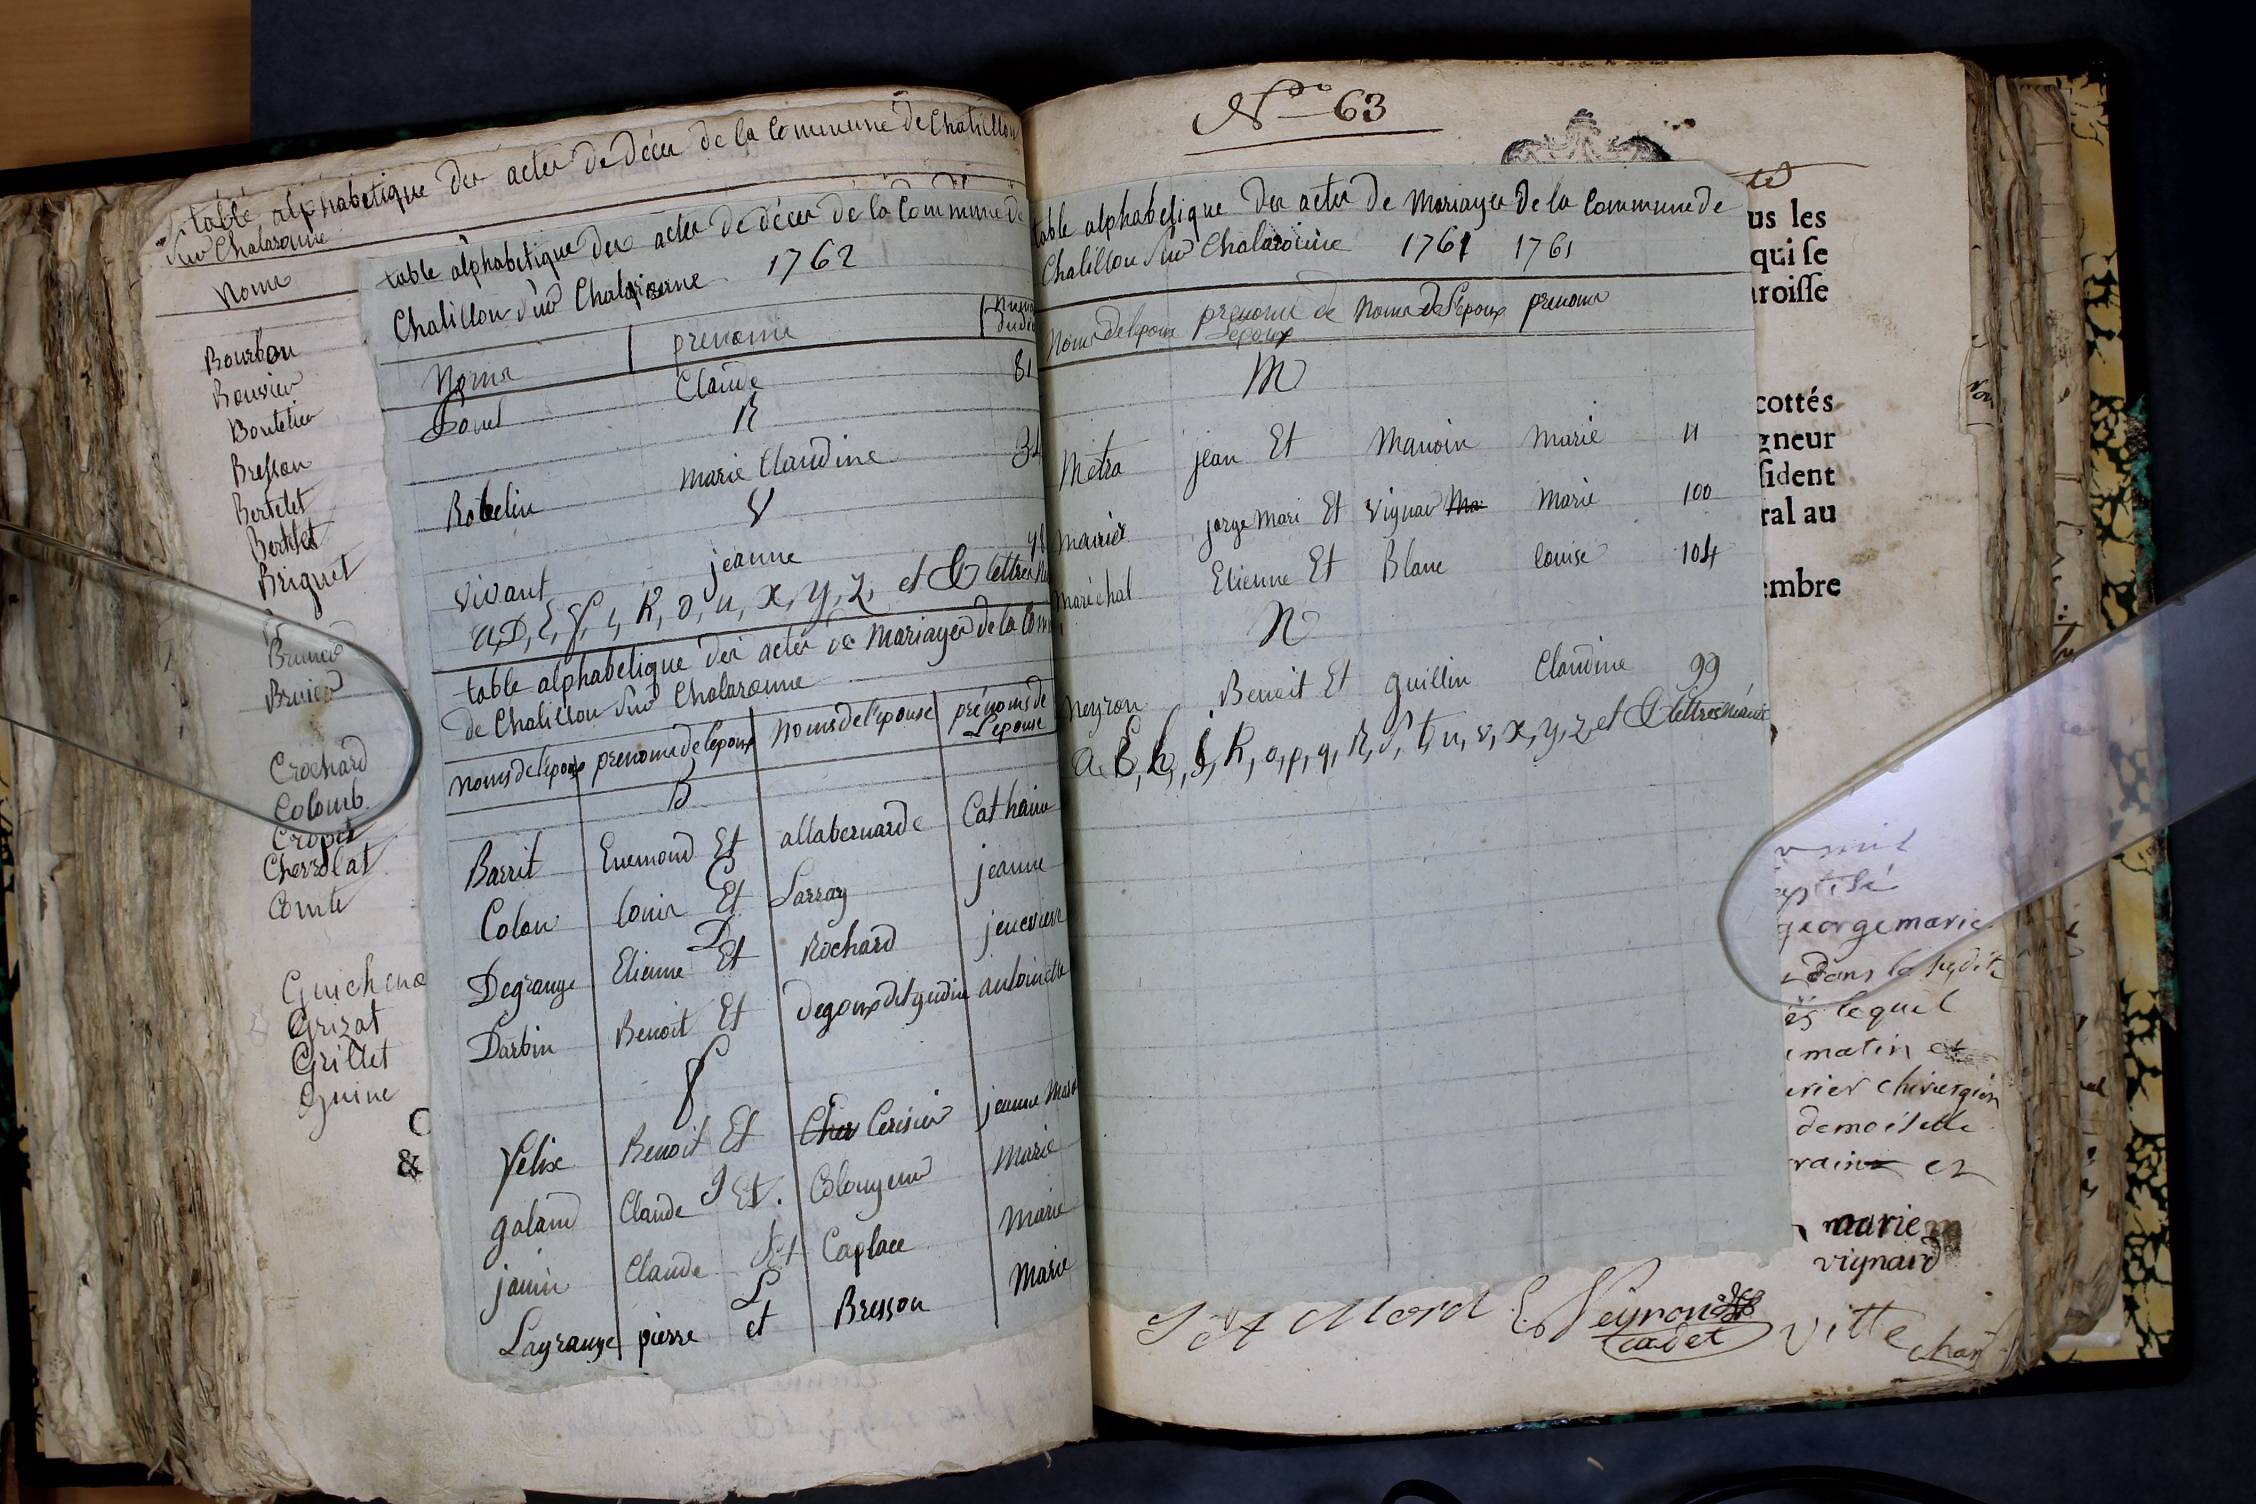 table alphabetique des actes de décès de la Commune de Chatillon
Sur Chalaronne
Noms
Bourbon
Bouvier
Boutelier
Bresson
Bertelet
Bertelet
Briquet
Brunet
Bruier
Crochard
Colomb
Cropet
Cherrolat
Comte
Guichena
Grizat
Grillet
Guine
&
table alphabetique des actes de décès de la Commune de
Chatillon Sur Chalaronne 1762
Noms prenoms
Ponet Claude 81
R
Robelin marie Claudine 34
V
Vivant jeanne
a, D, E, f, i, K, o, u, x, y, z, et & lettres
table alphabetique des actes de Mariages de la Com
de Chatillon Sur Chalaronne
Noms de lepoux prenoms de lepoux Noms de l'epouse prénoms de
L'epouse
B
Barrit Enemond Et allabernarde Catharin
C
Colon louis Et Sarray jeanne
D
Degrange Etienne Et Rochard jenevieve
Darbin Benoit Et degoux dit gudin antoinette
f
felix Benoit Et Cher Cerisier jeanne Marie
g
galand Claude Et. Colongeur Marie
J
janin Claude Et Caplace Marie
L
Lagrange pierre et Bresson Marie
N° 63
table alphabetique des actes de Mariages de la Commune de
Chatillon Sur Chalaronne 1761 1761
Noms de lepoux prenoms de Noms de l'Epoux prenoms
Lepoux
M
Métra jean Et Manoin Marie 11
maurier jorge Mari Et Vignar Ma Marie 100
maréchal Etienne Et Blanc louise 104
N
neyron Benoit Et guillin Claudine 99
a, E, h, i, K, o, p, q, R, S, t, u, v, x, y, z et & lettres néant
us les
qui se
aroisse
cottés
gneur
sident
ral au
embre
george marie
dans la
lequel
matin et
urier chirurgien
demoiselle
et
marie
vignard
Neyron
cadet
Vitte